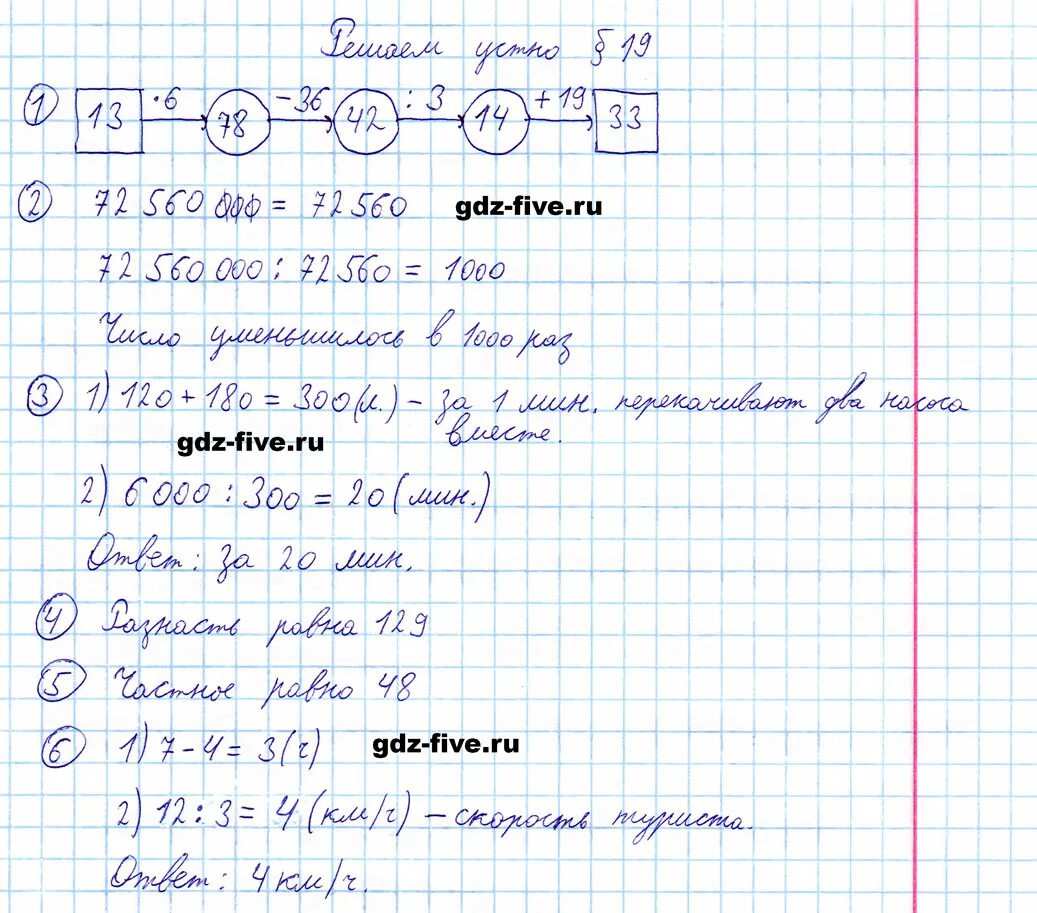 Решаем устно § 19
1 13 ·6 78 -36 42 : 3 14 +19 33
2 72 560 000 = 72 560 gdz-five.ru
72 560 000 : 72 560 = 1000
Число уменьшилось в 1000 раз
3 1) 120 + 180 = 300 (л.) - за 1 мин. перекачивают два насоса
gdz-five.ru вместе.
2) 6 000 : 300 = 20 (мин.)
Ответ: за 20 мин.
4 Разнасть равна 129
5 Частное равно 48
6 1) 7 - 4 = 3 (ч) gdz-five.ru
2) 12 : 3 = 4 (км/ч) - скорость туриста.
Ответ: 4 км/ч.